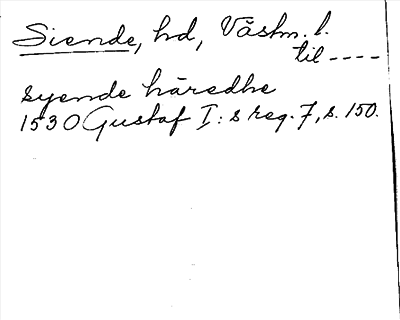 Siende, hd, Västm. l.
til ----
syende häredhe
1530 Gustaf I:s reg. 7, s. 150.